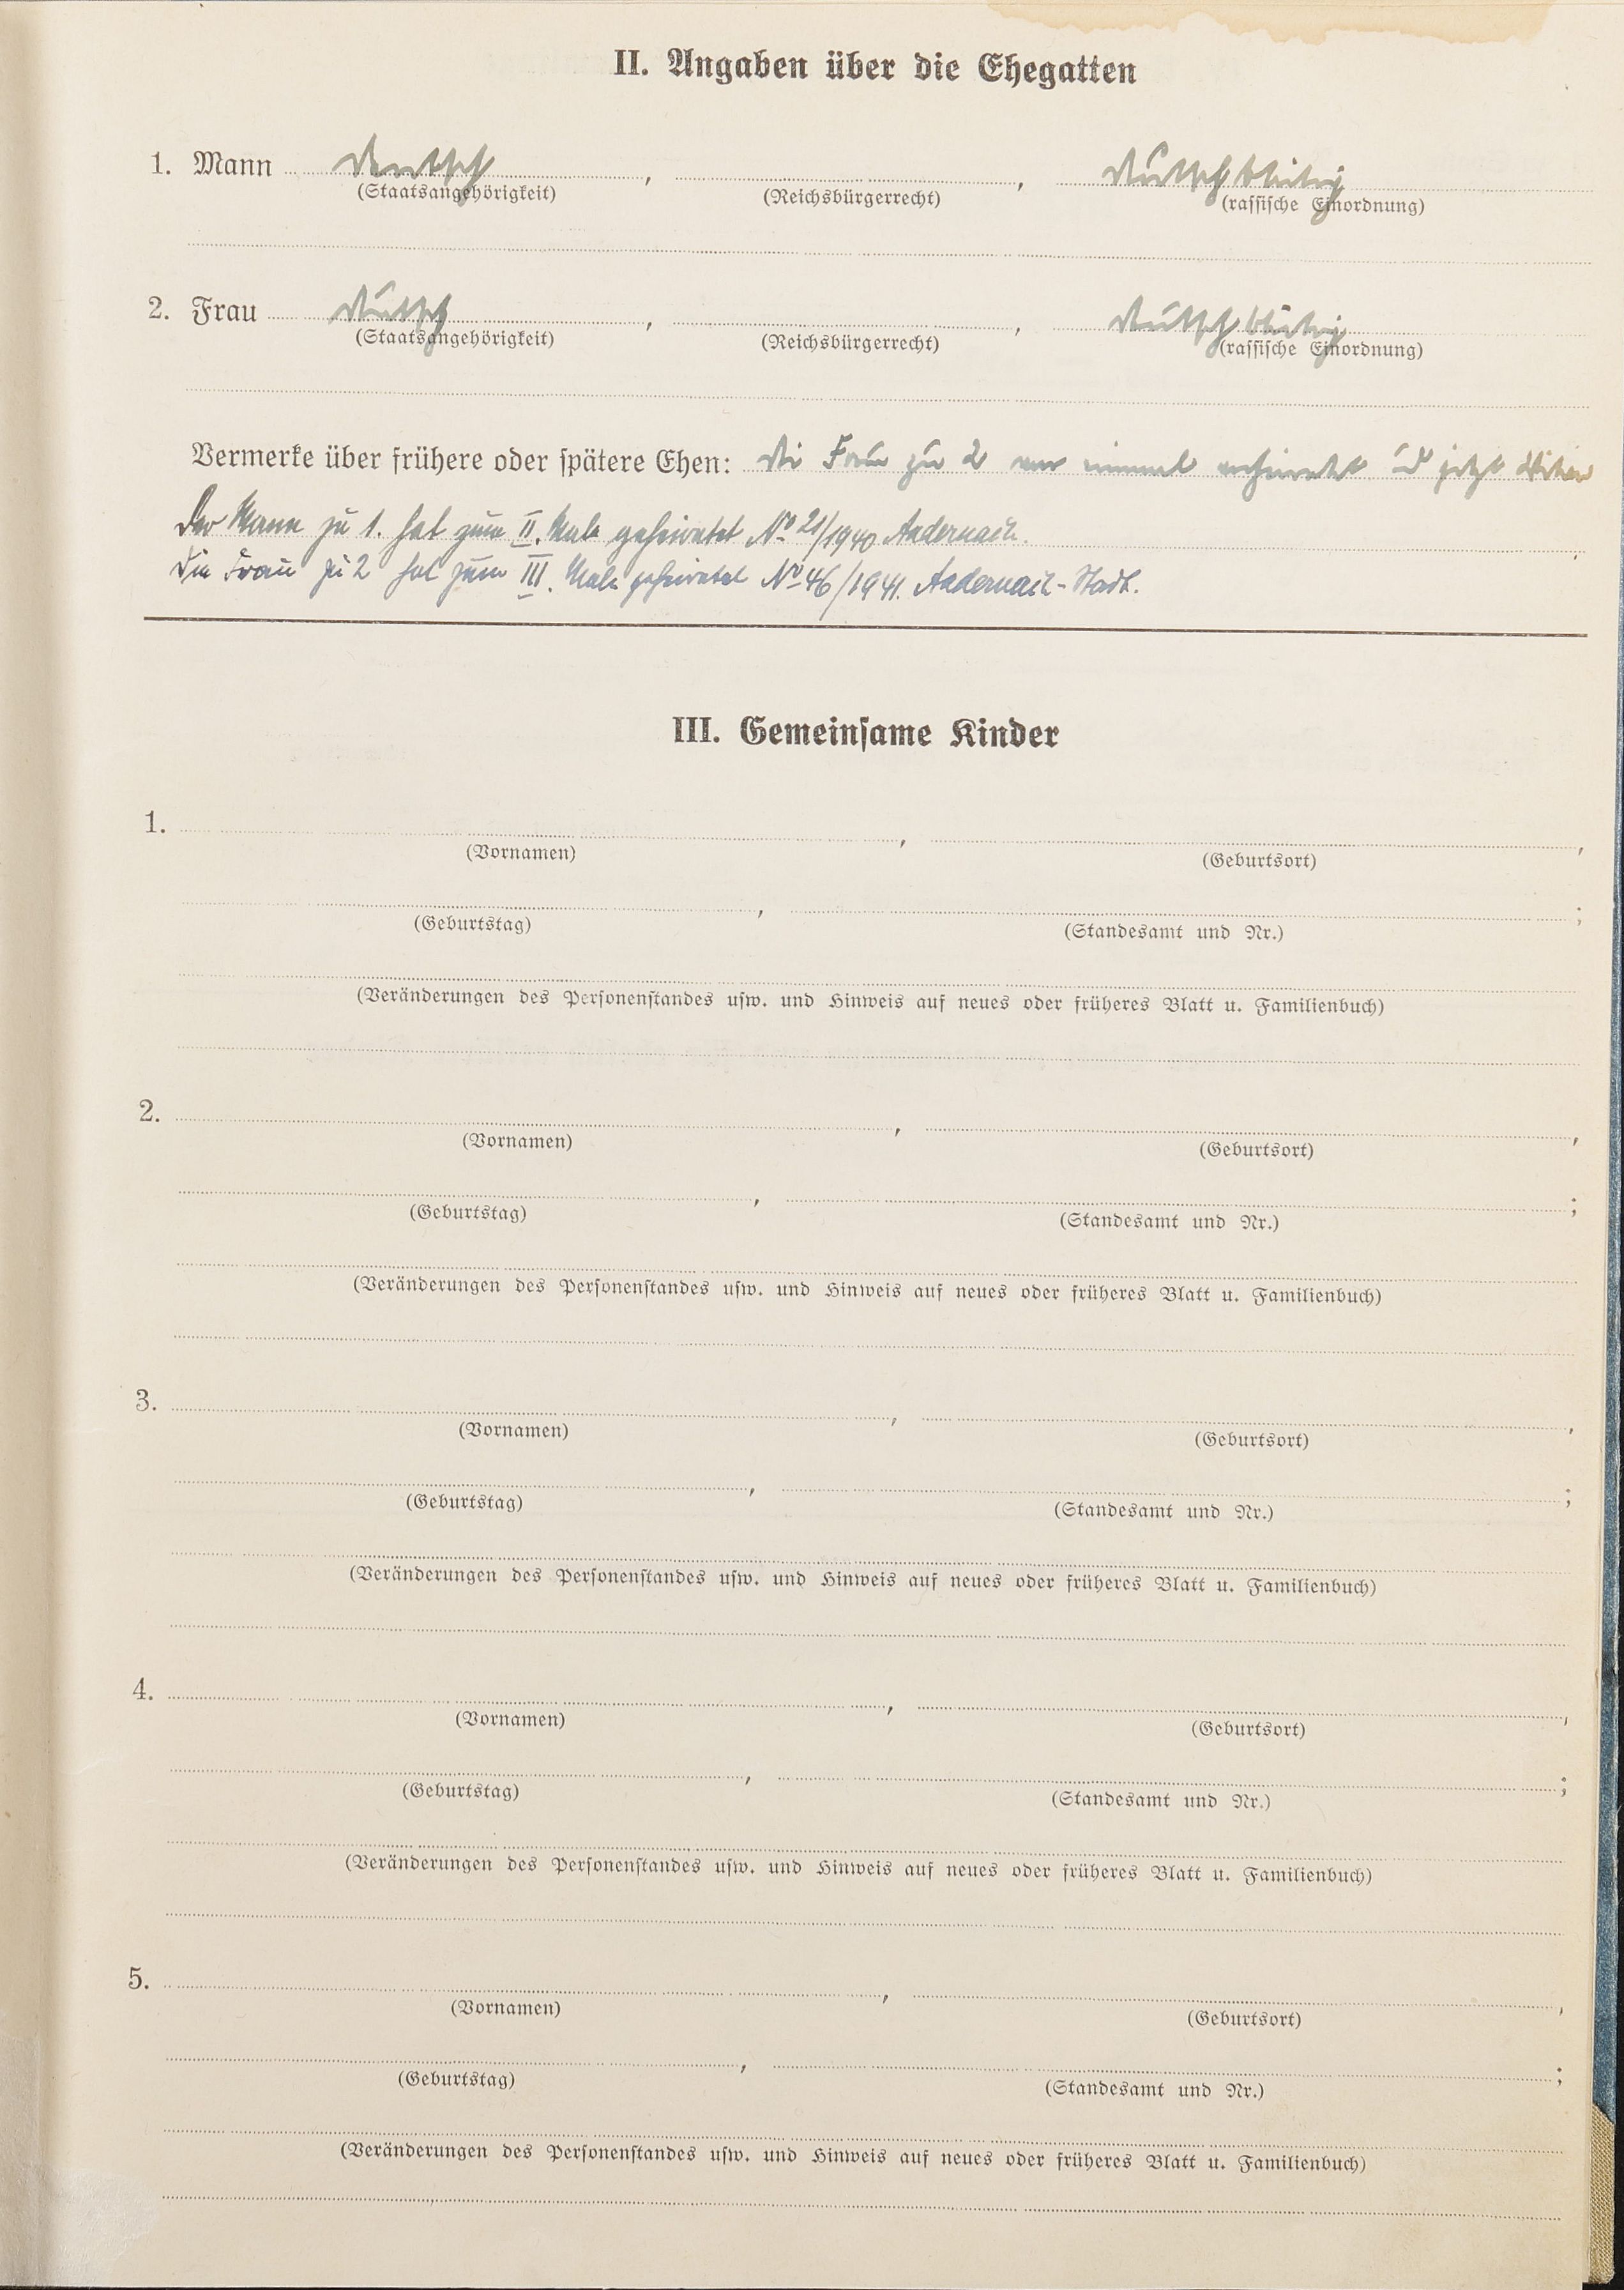 II. Angaben über die Ehegatten
1. Mann deutsch, , deutschblütig
(Staatsangehörigkeit) (Reichsbürgerrecht) (rassische Einordnung)
2. Frau deutsch, , deutschblütig
(Staatsangehörigkeit) (Reichsbürgerrecht) (rassische Einordnung)
Vermerke über frühere oder spätere Ehen: Die Frau zu 2 war einmal verheiratet und jetzt Witwe
Der Mann zu 1. hat zum II. Male geheiratet No 21/1940 Andernach.
Die Frau zu 2 hat zum III. Male geheiratet No 46/1941. Andernach-Stadt.
III. Gemeinsame Kinder
1. , ,
(Vornamen) (Geburtsort)
, ;
(Geburtstag) (Standesamt und Nr.)
(Veränderungen des Personenstandes usw. und Hinweis auf neues oder früheres Blatt u. Familienbuch)
2. , ,
(Vornamen) (Geburtsort)
, ;
(Geburtstag) (Standesamt und Nr.)
(Veränderungen des Personenstandes usw. und Hinweis auf neues oder früheres Blatt u. Familienbuch)
3. , ,
(Vornamen) (Geburtsort)
, ;
(Geburtstag) (Standesamt und Nr.)
(Veränderungen des Personenstandes usw. und Hinweis auf neues oder früheres Blatt u. Familienbuch)
4. , ,
(Vornamen) (Geburtsort)
, ;
(Geburtstag) (Standesamt und Nr.)
(Veränderungen des Personenstandes usw. und Hinweis auf neues oder früheres Blatt u. Familienbuch)
5. , ,
(Vornamen) (Geburtsort)
, ;
(Geburtstag) (Standesamt und Nr.)
(Veränderungen des Personenstandes usw. und Hinweis auf neues oder früheres Blatt u. Familienbuch)